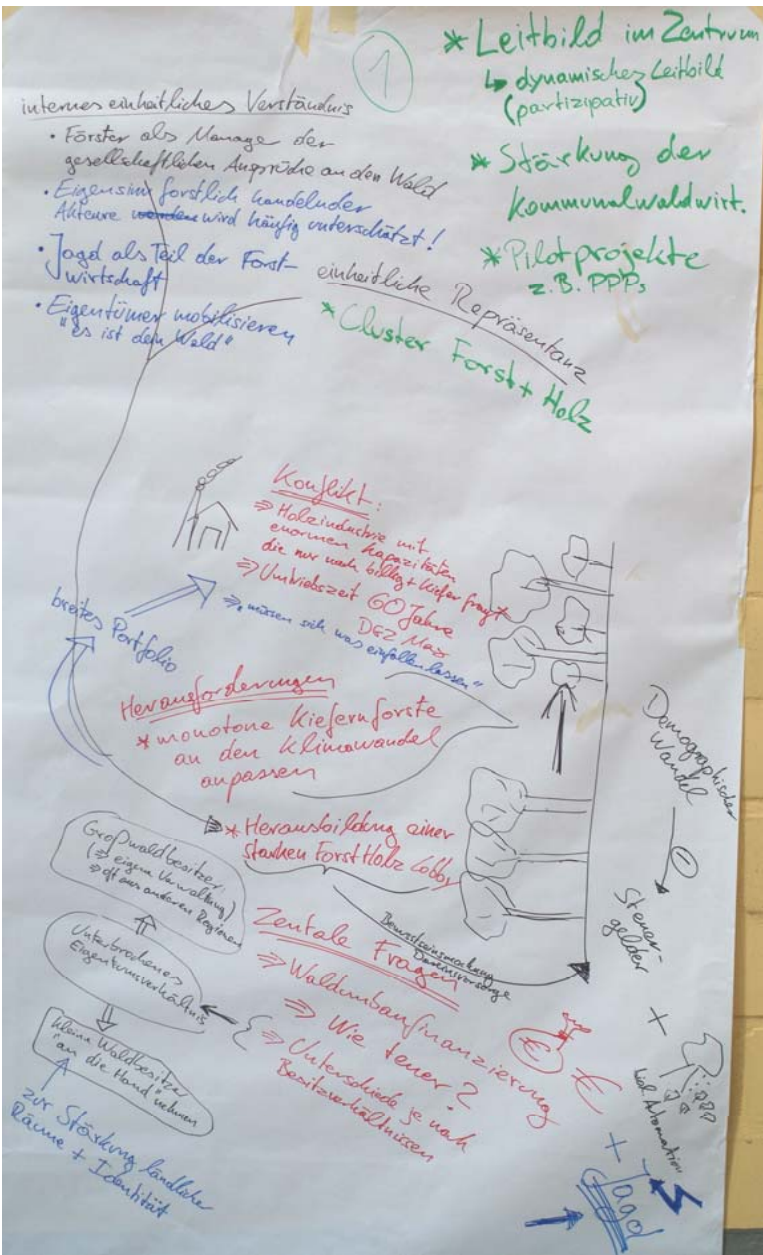 1
* Leitbild im Zentrum
↳ dynamisches Leitbild
(partizipativ)
* Stärkung der
Kommunalwaldwirt.
* Pilotprojekte
z.B. PPPs
internes einheitliches Verständnis
• Förster als Manage der
gesellschaftlichen Ansprüche an den Wald
• Eigensinn forstlich handelnder
Akteure wird häufig unterschätzt!
• Jagd als Teil der Forst-
wirtschaft
• Eigentümer mobilisieren
"es ist dein Wald"
einheitliche Repräsentanz
* Cluster Forst + Holz
Konflikt:
⇒ Holzindustrie mit
enormen Kapazitäten
die nur nach billig + Kiefer fragt
⇒ Umtriebszeit 60 Jahre
DGZ Max
⇒ "müssen sich was einfallen lassen"
breites Portfolio
Herausforderungen
* monotone Kiefernforste
an den Klimawandel
anpassen
* Herausbildung einer
starken Forst Holz Lobby
Bewusstseinsmachung
Daseinsvorsorge
Demographischer
Wandel
Steuer-
gelder
+
PPP
+
Jagd
Großwaldbesitzer:
(⇒ eigene Verwaltung)
⇒ oft aus anderen Regionen
Unterbrochenes
Eigentumsverhältnis
kleine Waldbesitzer
"an die Hand" nehmen
zur Stärkung ländliche
Räume + Identität
Zentale Fragen
⇒ Waldumbaufinanzierung
⇒ Wie teuer?
⇒ Unterschiede je nach
Besitzverhältnissen
€ €